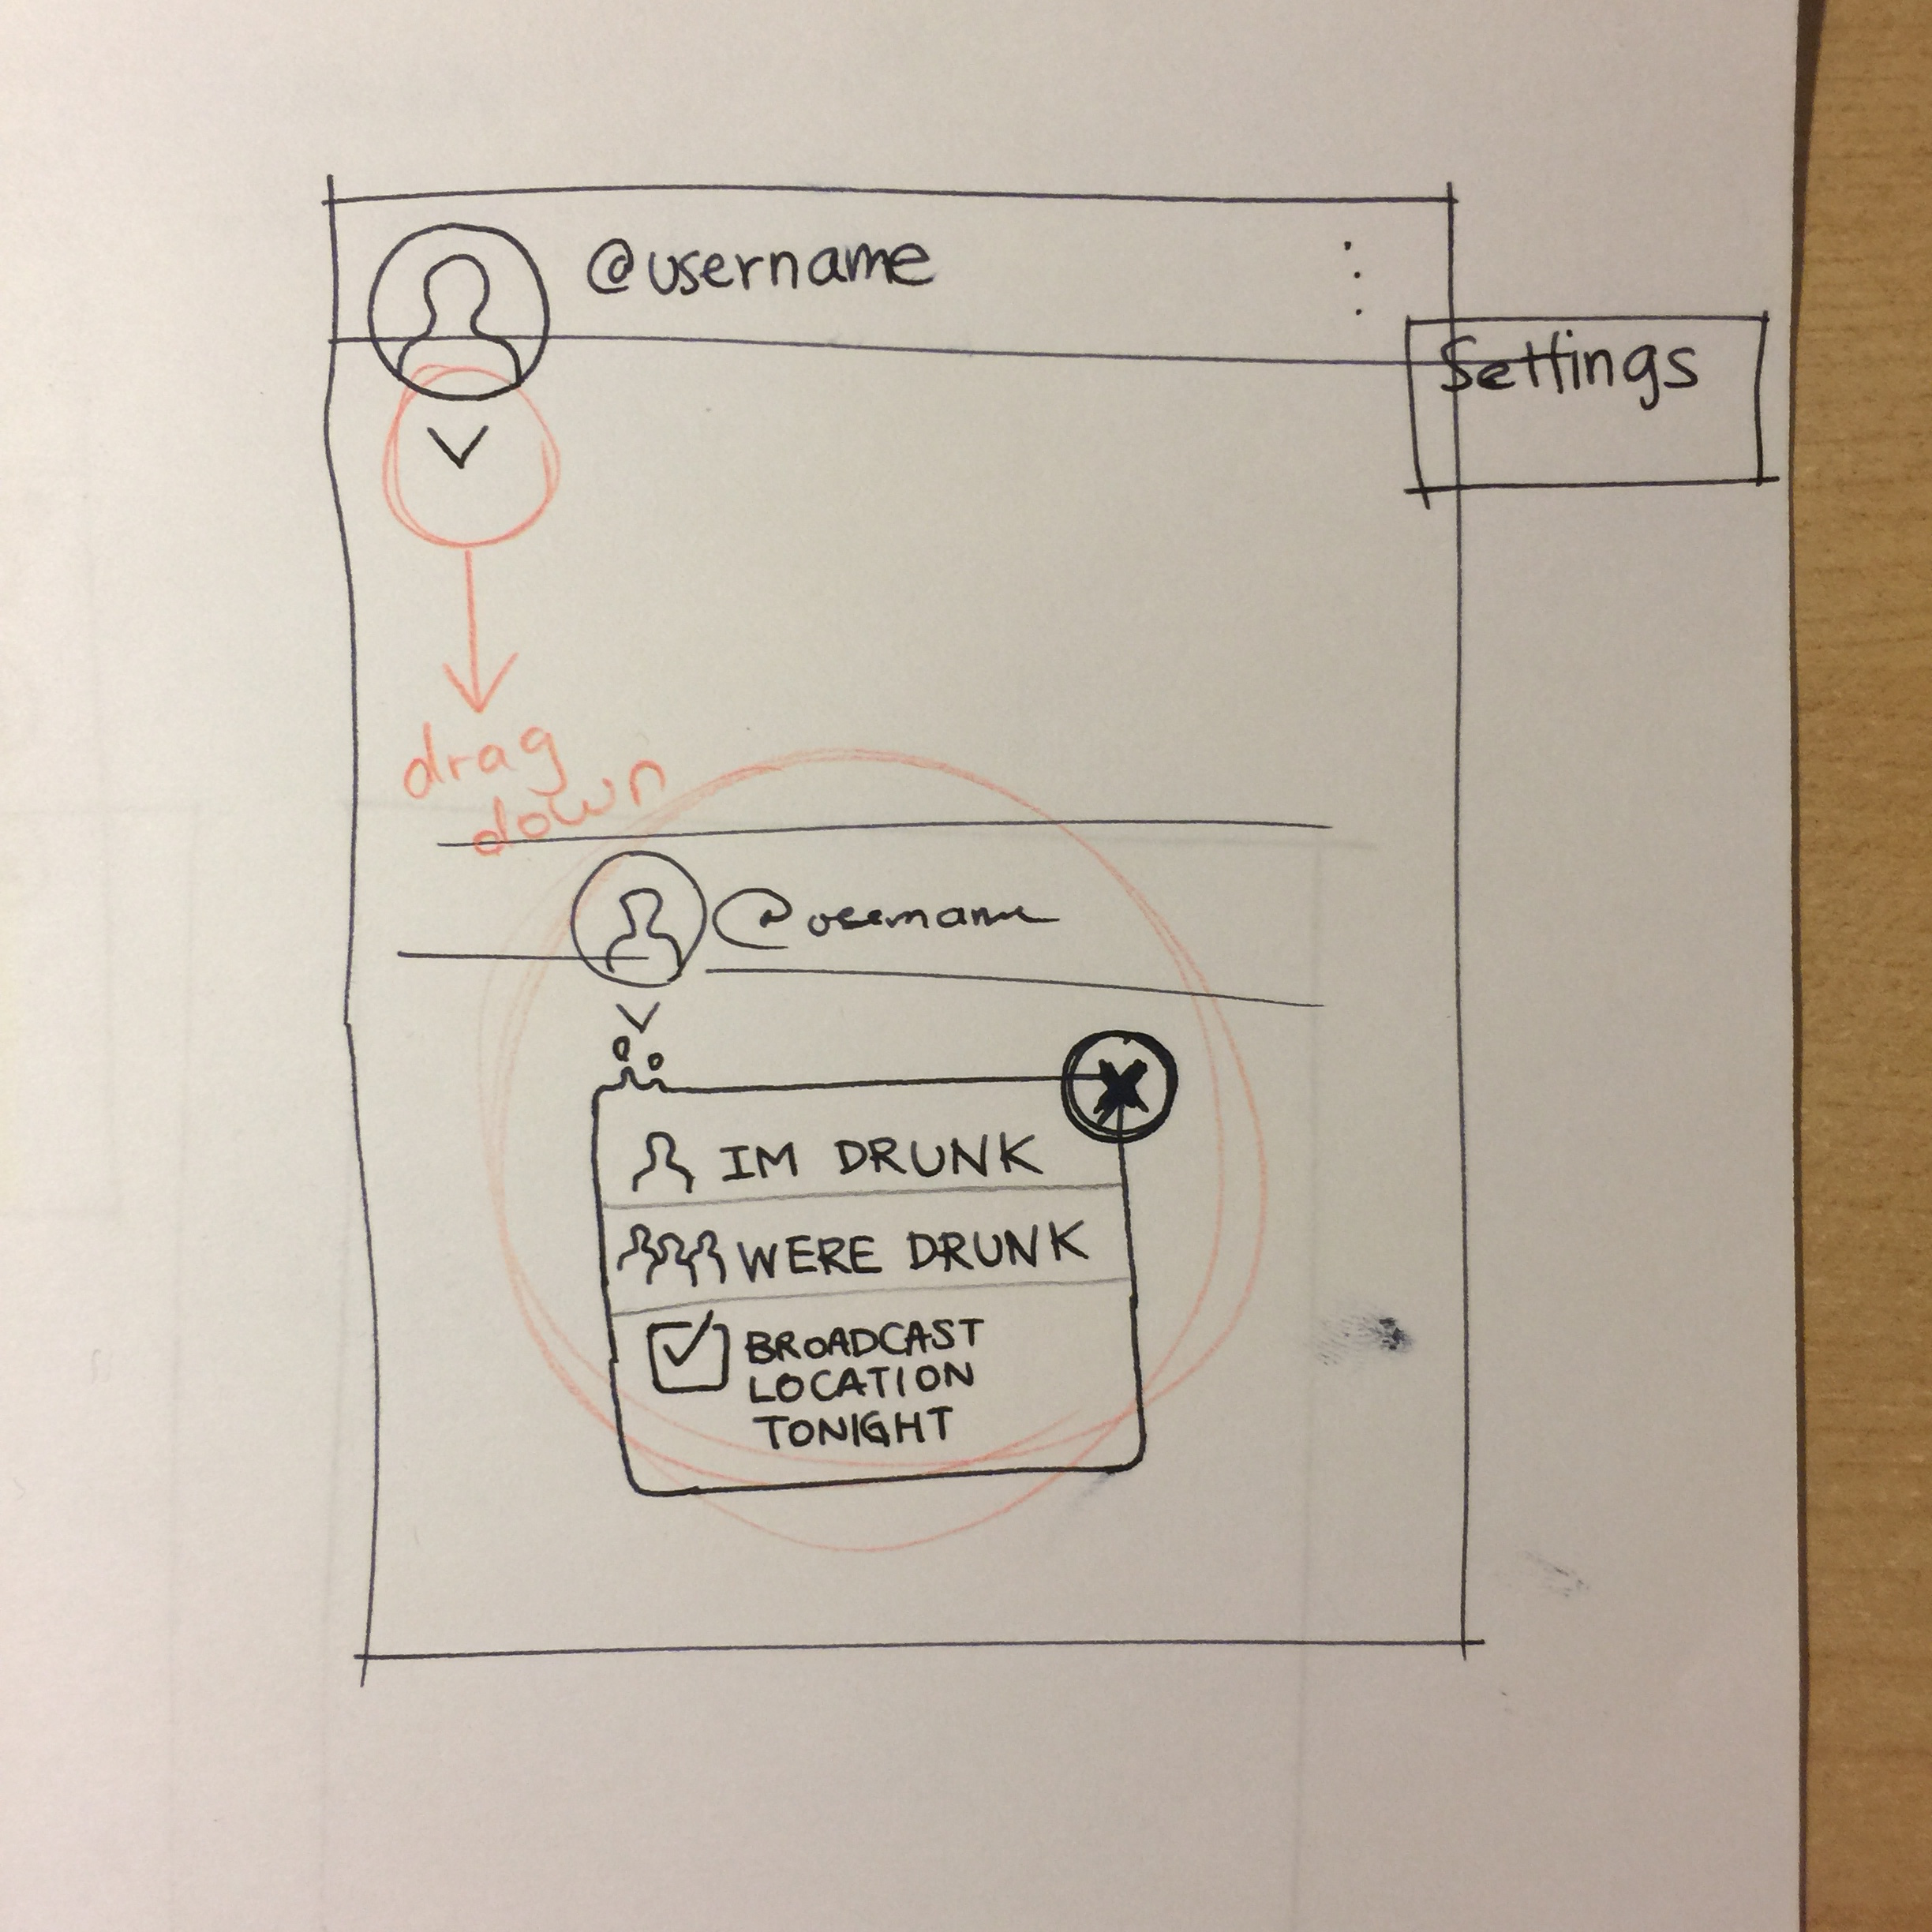 @username
Settings
drag
down
@username
IM DRUNK
WERE DRUNK
BROADCAST
LOCATION
TONIGHT